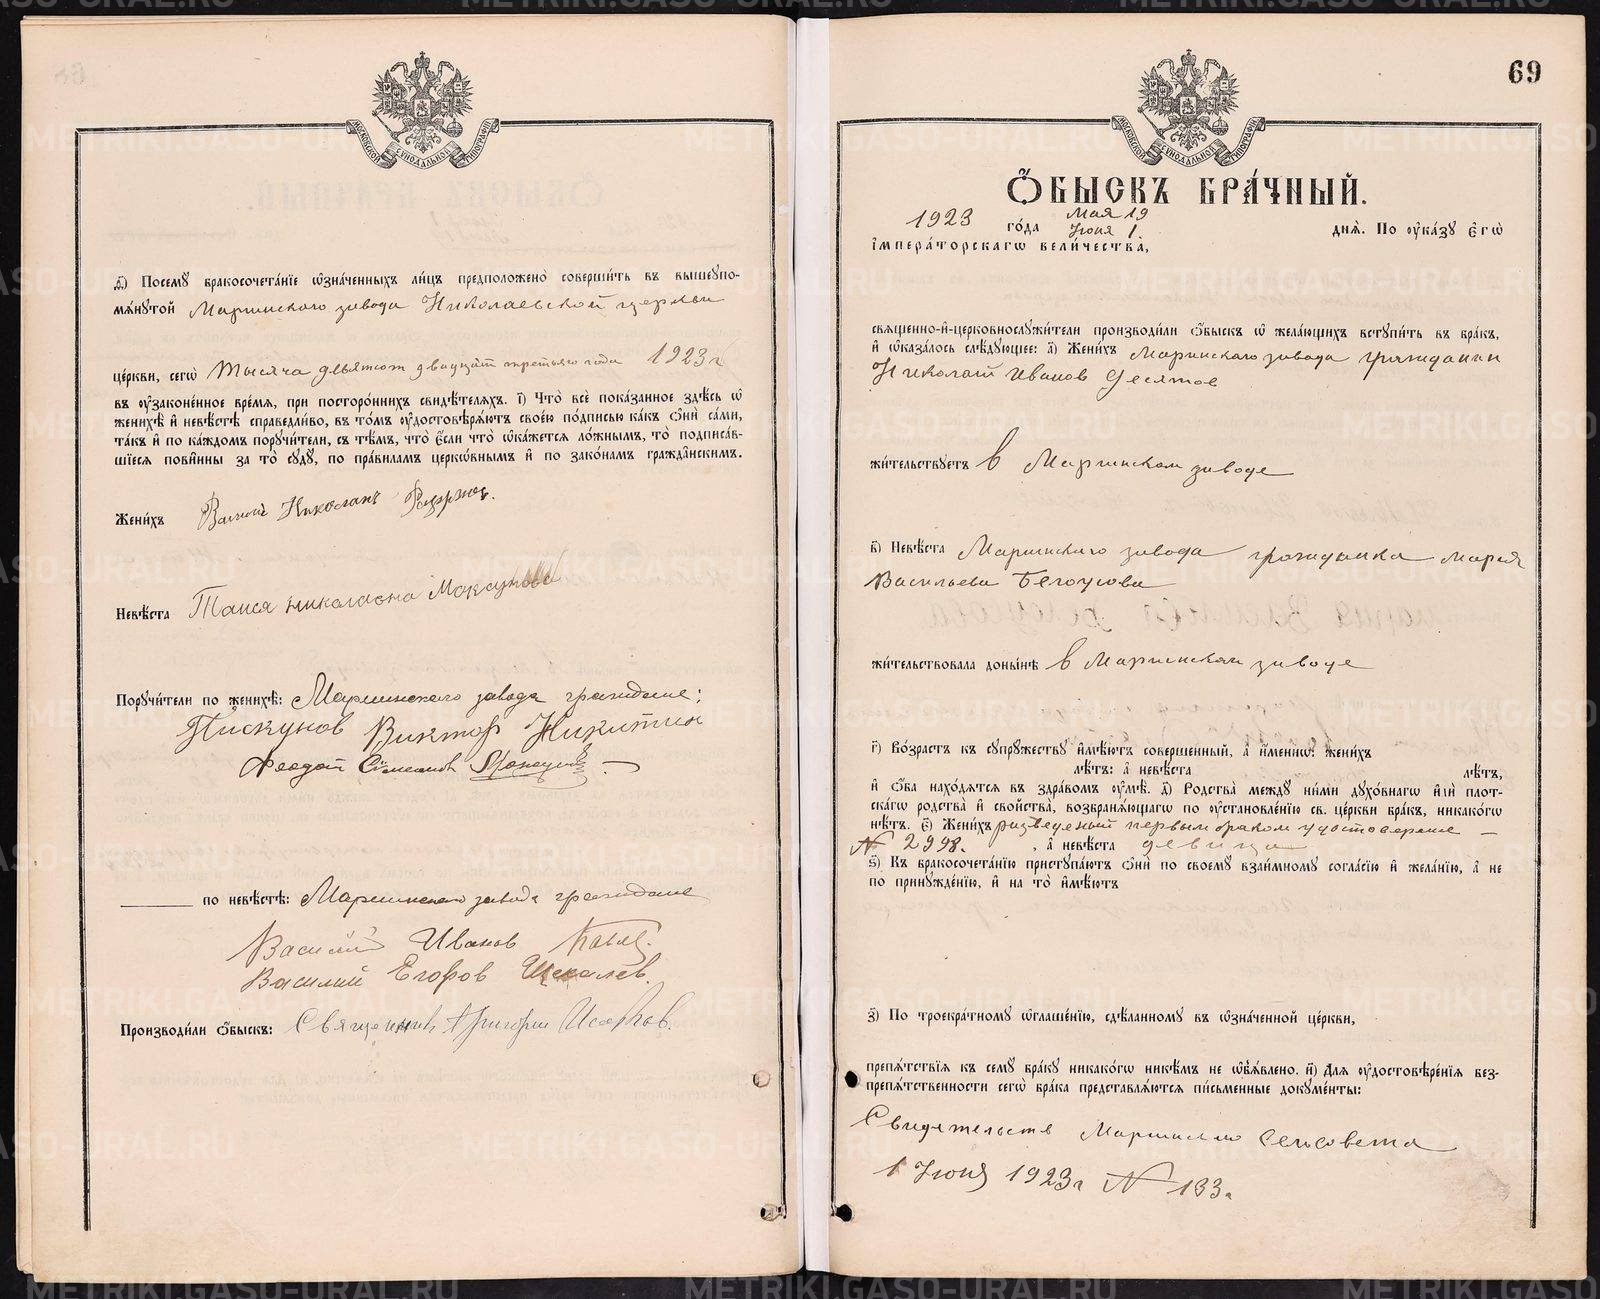 МОСКОВСКОЙ СѴНОДАЛЬНОЙ ТИПОГРАФІИ
д҃) Посемꙋ бракосочета́нїе ѡзна́ченныхъ ли́цъ предположено̀ соверши́ть въ вышеꙋпо-
мѧ́нꙋтой Мариинского завода Николаевской церкви
це́ркви, сегѡ̀ Тысяча девятсот двадцат третьяго года 1923 г
въ ᲂу҆зако́не́нное вре́мѧ, при посторо́ннихъ свидѣ́телѧхъ. і҃) Что̀ всѐ показа́нное здѣ́сь ѡ҆
женихѣ̀ и҆ невѣ́стѣ справедли́во, въ то́мъ ᲂу҆достовѣрѧ́ютъ свое́ю по́дписью ка́къ ѻ҆нѝ са́ми,
та́къ и҆ по ка́ждомъ порꙋчи́тели, съ тѣ́мъ, что̀ є҆́сли что̀ ѡ҆ка́жетсѧ ло́жнымъ, то̀ подписа́в-
шїесѧ пови́нны за то̀ сꙋдꙋ̀, по пра́виламъ церко́внымъ и҆ по зако́намъ гражда́нскимъ.
Жени́хъ
Невѣ́ста Таися николаевна Максунова
Порꙋчи́тели по женихѣ̀: Мариинского завода граждане:
Пискунов Виктор Никитин
Феодот Симеонов
по невѣ́стѣ: Мариинского завода граждане
Василий Иванов
Василий Егоров Щекалев.
Производи́ли ѻ҆́быскъ: Священник Григорий
69
МОСКОВСКОЙ СѴНОДАЛЬНОЙ ТИПОГРАФІИ
Ѻ҆́БЫСКЪ БРА́ЧНЫЙ.
1923 го́да Мая 19 Июня 1 днѧ̀. По ᲂу҆ка́зꙋ Є҆гѡ̀
і҆мпера́торскагѡ вели́чества,
свѧще́нно-и҆-церковнослꙋжи́тели производи́ли ѻ҆́быскъ ѡ҆ жела́ющихъ встꙋпи́ть въ бра́къ,
и҆ ѡ҆каза́лось слѣ́дꙋющее: а҃) Жени́хъ Мариинского завода гражданин
Николай Иванов Десятов
жи́тельствꙋетъ в Мариинском заводе
в҃) Невѣ́ста Мариинского завода гражданка Мария
Васильева Белоусова
жи́тельствовала доны́нѣ в Мариинском заводе
г҃) Во́зрастъ къ сꙋпрꙋ́жествꙋ и҆мѣ́ютъ соверше́нный, а҆ и҆́меннѡ: жени́хъ
лѣ́тъ: а҆ невѣ́ста лѣ́тъ,
и҆ ѻ҆́ба нахо́дѧтсѧ въ здра́вомъ ᲂу҆мѣ̀. д҃) Родства̀ междꙋ̀ ни́ми дꙋхо́внагѡ и҆лѝ пло́т-
ска́гѡ родства̀ и҆ сво́йства, возбранѧ́ющагѡ по ᲂу҆становле́нїю св. це́ркви бра́къ, никако́гѡ
нѣ́тъ. є҃) Жени́хъ разведеный первым браком удостоверение —
№ 2998. , а҆ невѣ́ста девица
ѕ҃) Къ бракосочета́нїю пристꙋпа́ютъ ѻ҆нѝ по своемꙋ̀ взаи́мномꙋ согла́сїю и҆ жела́нїю, а҆ не
по принꙋжде́нїю, и҆ на то̀ и҆мѣ́ютъ
з҃) По троекра́тномꙋ ѡ҆глаше́нїю, сдѣ́ланномꙋ въ ѡ҆зна́ченной це́ркви,
препѧ́тствїѧ къ семꙋ̀ бра́кꙋ никако́гѡ никѣ́мъ не ѡ҆б̾ѧ́влено. и҃) Длѧ ᲂу҆достовѣре́нїѧ без-
препѧ́тственности сегѡ̀ бра́ка представлѧ́ютсѧ пи́сьменные докꙋме́нты:
Свидетельств Мариинского Сельсовета
1 Июня 1923 г № 133.